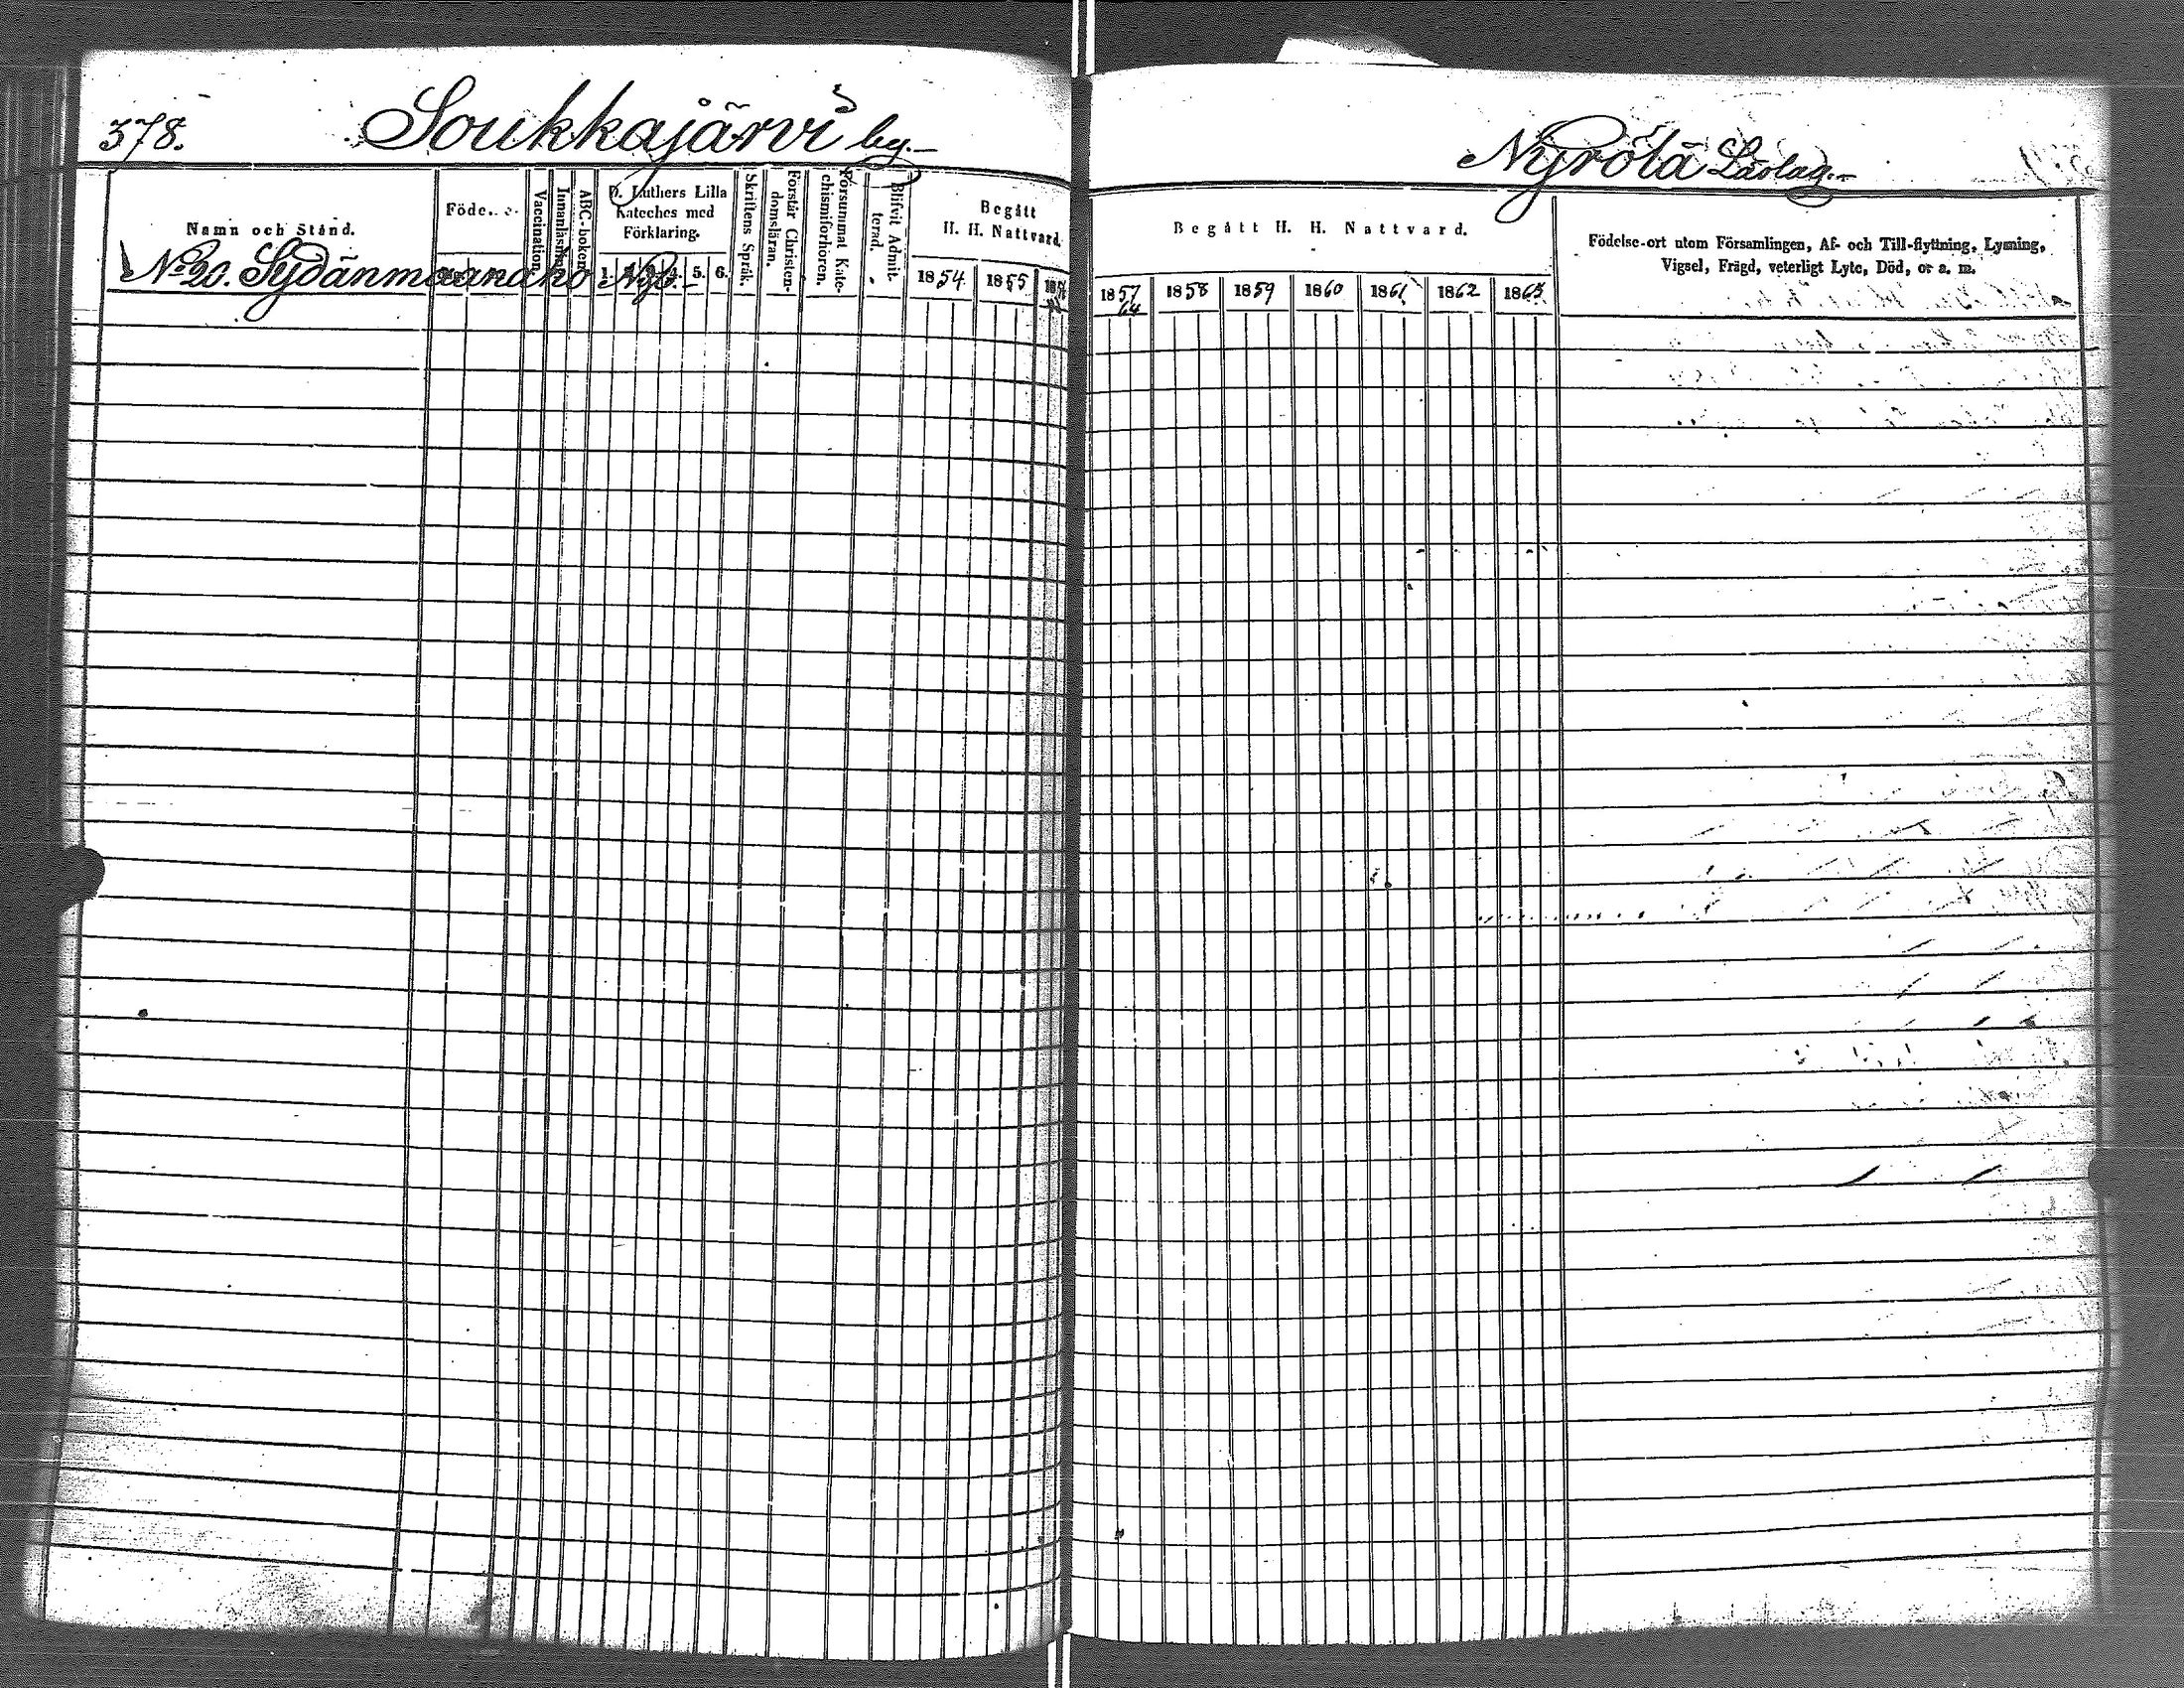 378. Soukkajärvi by.
Namn och Stånd.
Vaccination.
Innanläsning
ABC-boken
D. Luthers Lilla
Kateches med
Förklaring.
1. 2. 3. 4. 5. 6.
Skriftens Språk.
Förstår Christen-
domsläran.
Försummat Kate-
chismiförhören.
Blifvit Admit-
terad.
Begått
H. H. Nattvard.
1854 1855 1856
No 20. Sydänmaanaho
Nyrölä Läslag.
Begått H. H. Nattvard.
1857 1858 1859 1860 1861 1862 1863
64
Födelse-ort utom Församlingen, Af- och Till-flyttning, Lysning,
Vigsel, Frägd, veterligt Lyte, Död, or s. m.